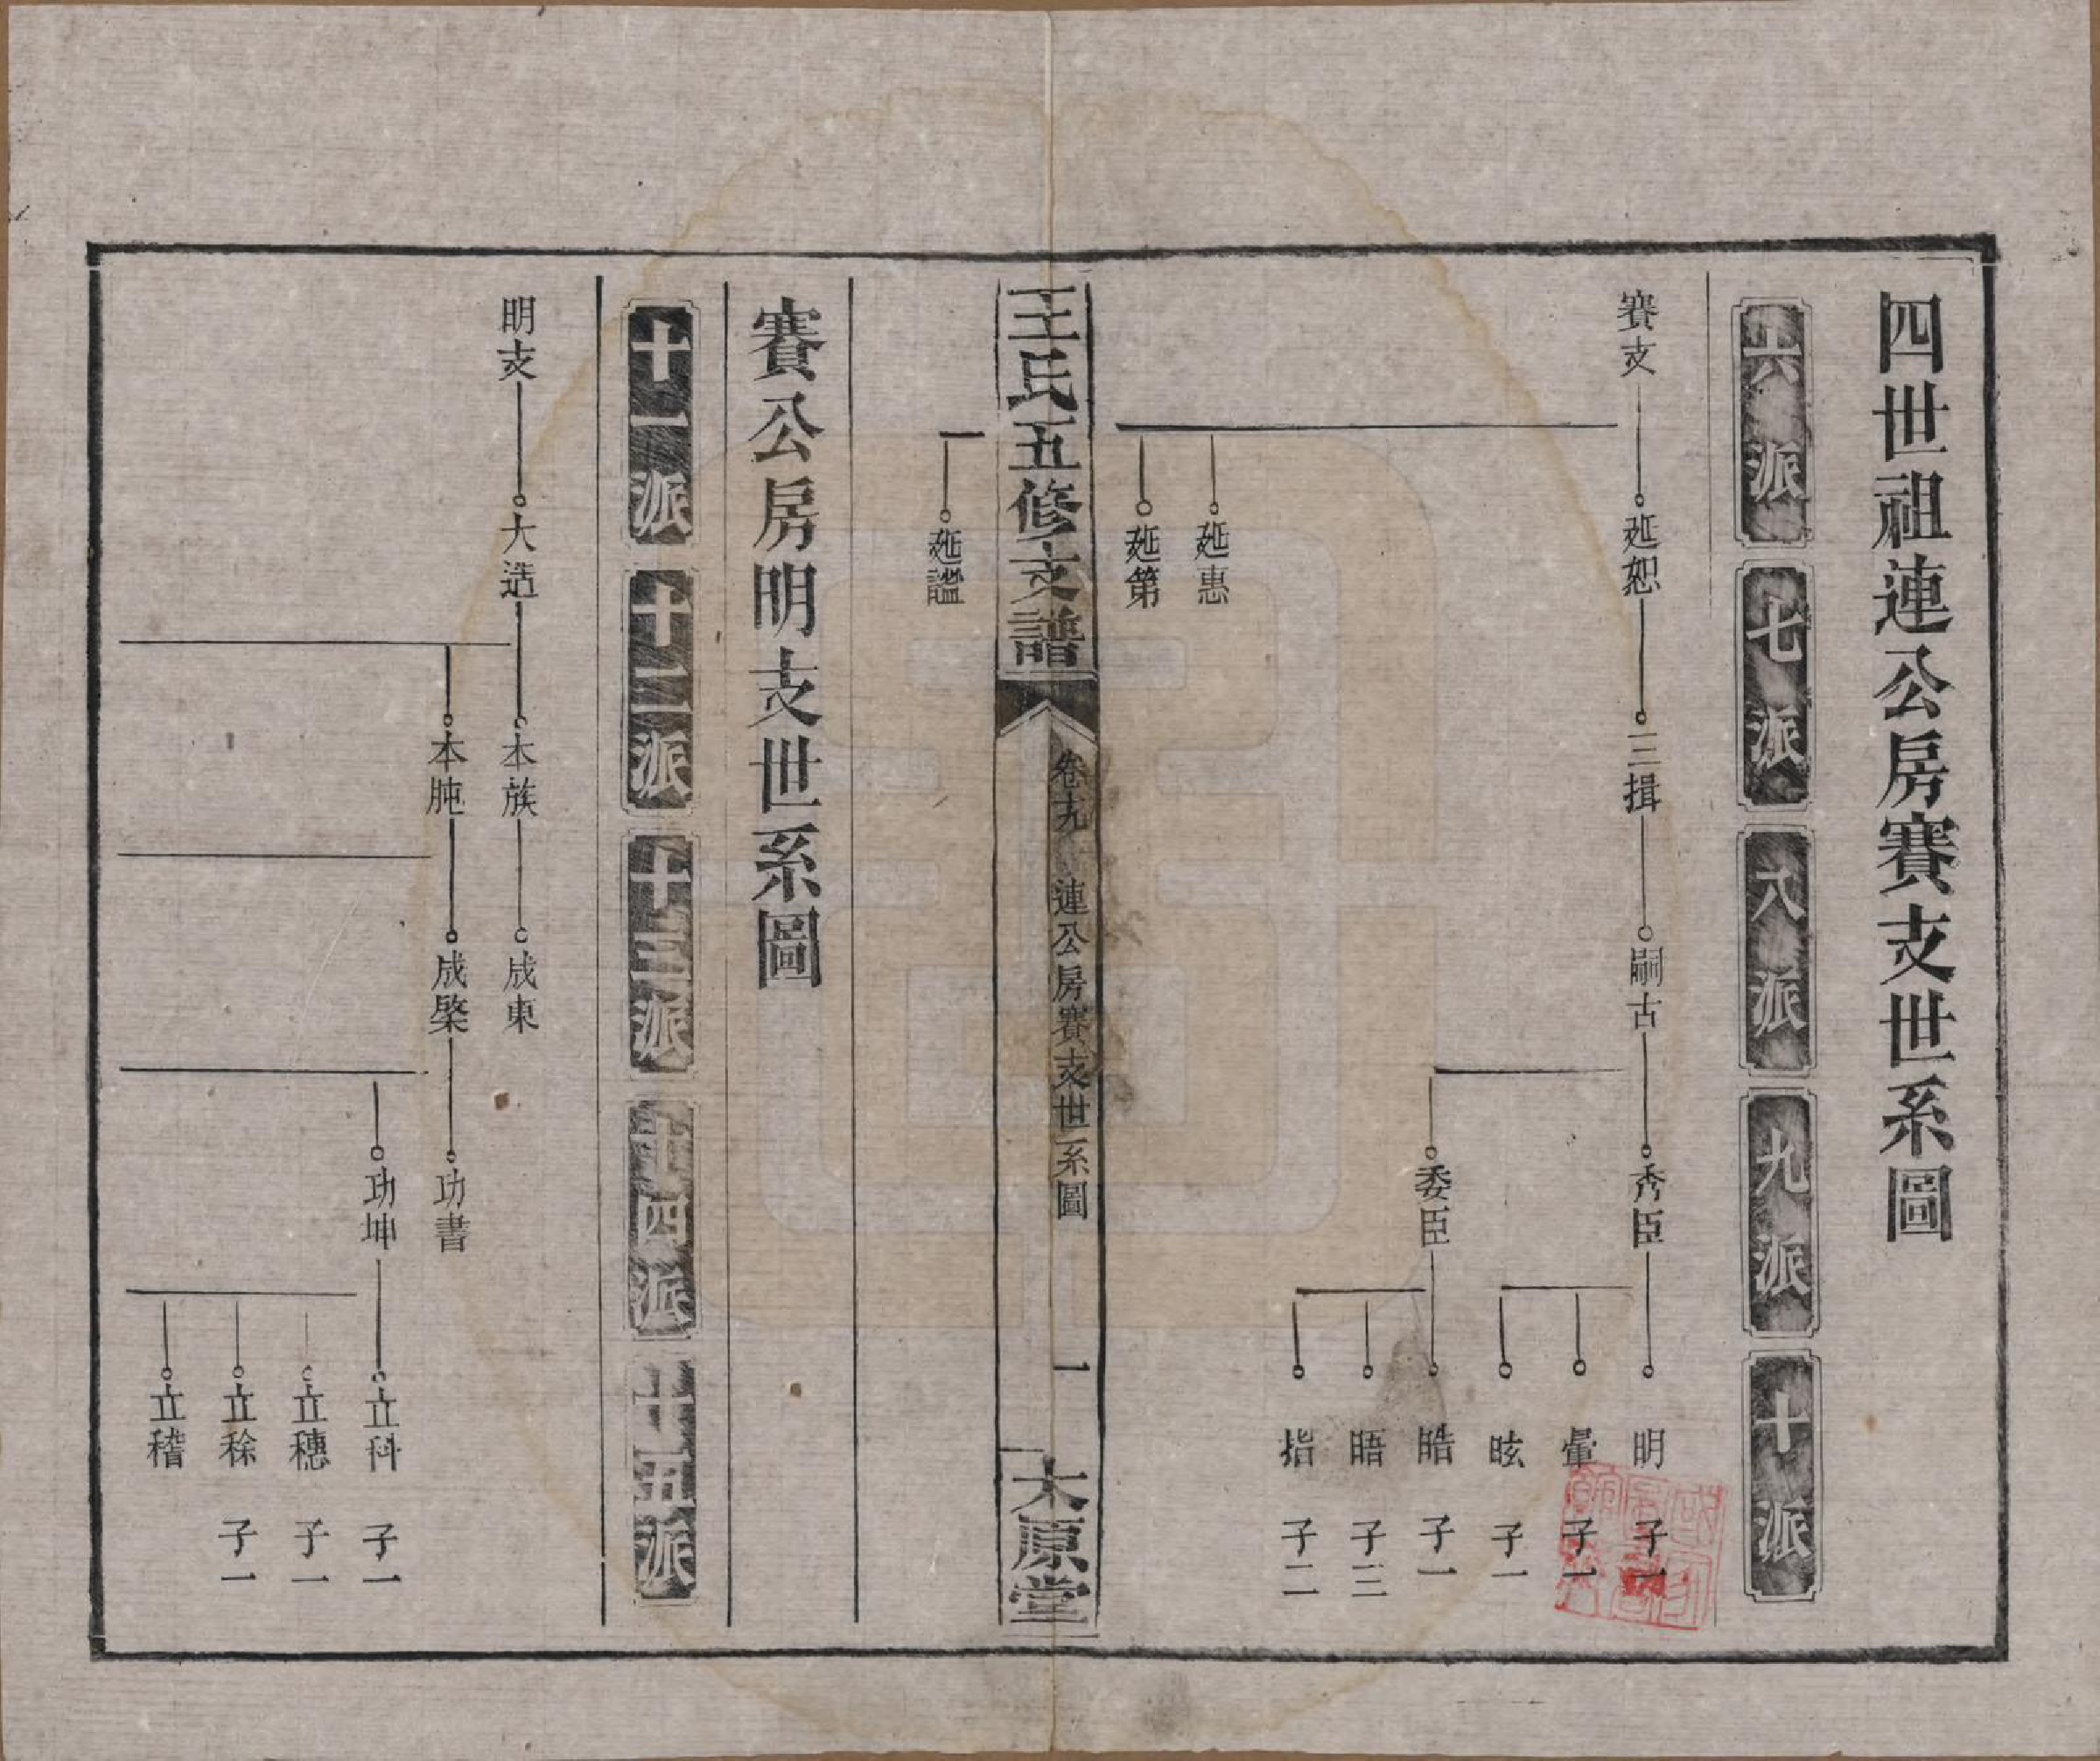 四世祖連公房賽支世系圖
六派
七派
八派
九派
十派
賽支
廵恕
三揖
嗣古
秀臣
明 子一
暈 子一
昡 子一
委臣
晧 子一
晤 子三
指 子二
廵惠
廵第
王氏五修支譜
卷九
連公房賽支世系圖
一
太原堂
廵謐
賽公房明支世系圖
十一派
十二派
十三派
十四派
十五派
明支
大造
本族
成東
本肫
成棨
功書
功坤
立科 子一
立穗 子一
立稌 子一
立稽